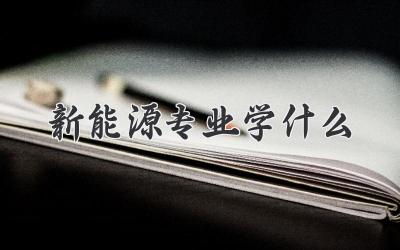 新能源专业学什么